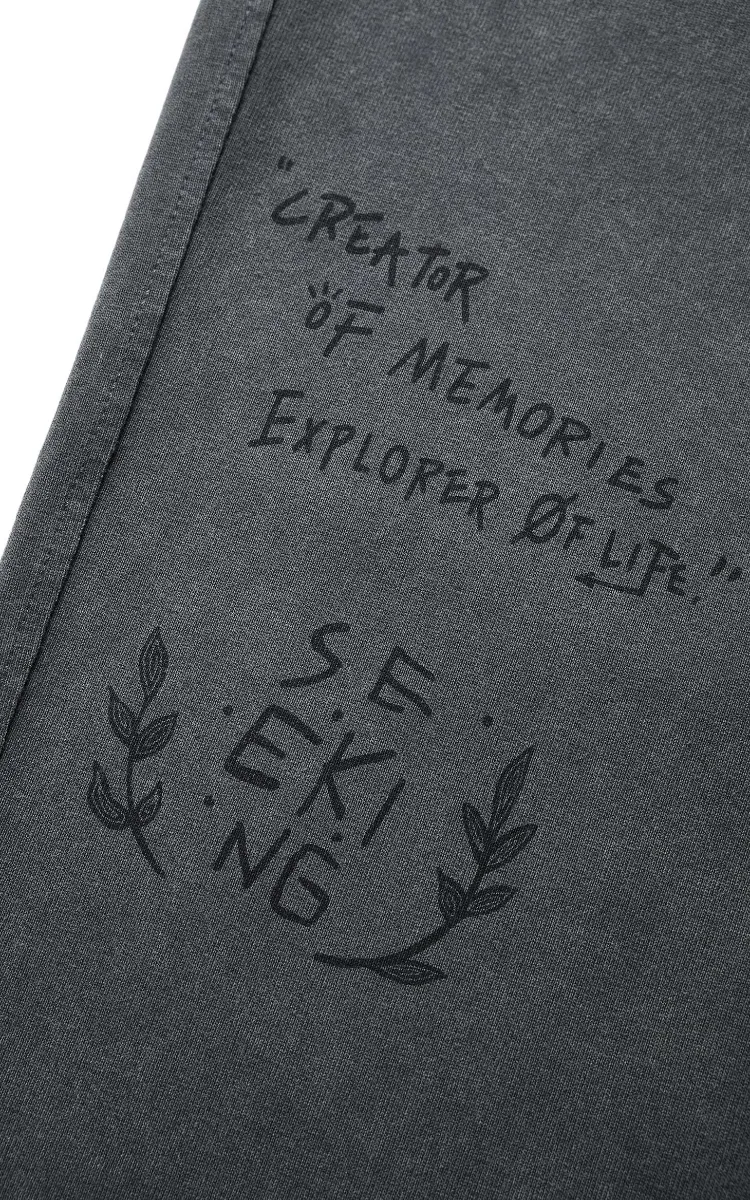 "CREATOR
OF MEMORIES
EXPLORER ØF LIFE."
SE
EKI
NG